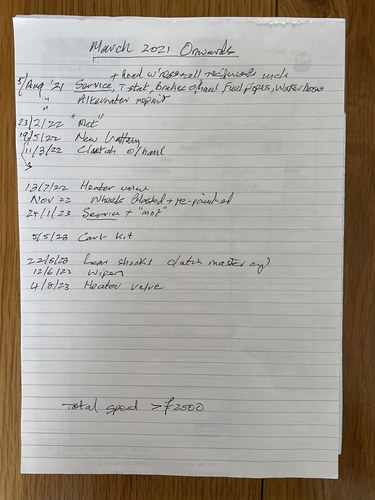 March 2021 Onwards
+ Road w'
5/Aug '21 Service, T stat, Brakes o/haul Fuel pipes, Water hoses
" Alternator repair
"
23/2/22 "Mot"
19/5/22 New Battery
11/3/22 Clutch o/haul
13/7/22 Heater valve
Nov 22 Wheels blasted + re-painted
24/1/23 Service + "mot"
5/5/23 Carb Kit
22/5/23 Rear shocks clutch master cyl
12/6/23 Wipers
4/8/23 Heater valve
Total spend > £2500